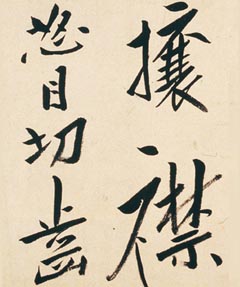 攘襟
怒目切齒